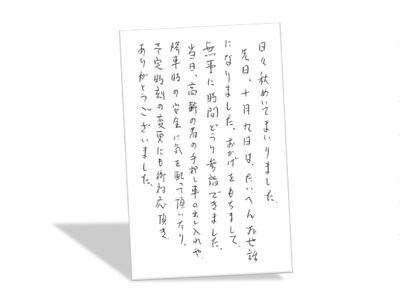 日々秋めいてまいりました。
先日、十月九日は、たいへんお世話
になりました。おかげをもちまして、
無事に時間どうり参詣できました。
当日、高齢の者の手押し車の出し入れや、
降車時の安全に気を配って頂いたり、
予定時刻の変更にも御対応頂き、
ありがとうございました。